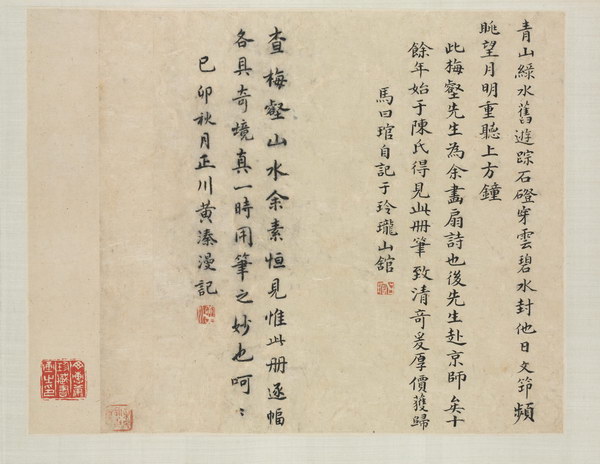 青山綠水舊遊踪石磴穿雲碧水封他日文筇頻
眺望月明重聽上方鐘
此梅壑先生為余畫扇詩也後先生赴京師矣十
餘年始于陳氏得見此册筆致清奇爰厚價獲歸
馬曰琯自記于玲瓏山舘
查梅壑山水余素恒見惟此册逐幅
各具奇境真一時用筆之妙也呵〻
巳卯秋月正川黃溱漫記